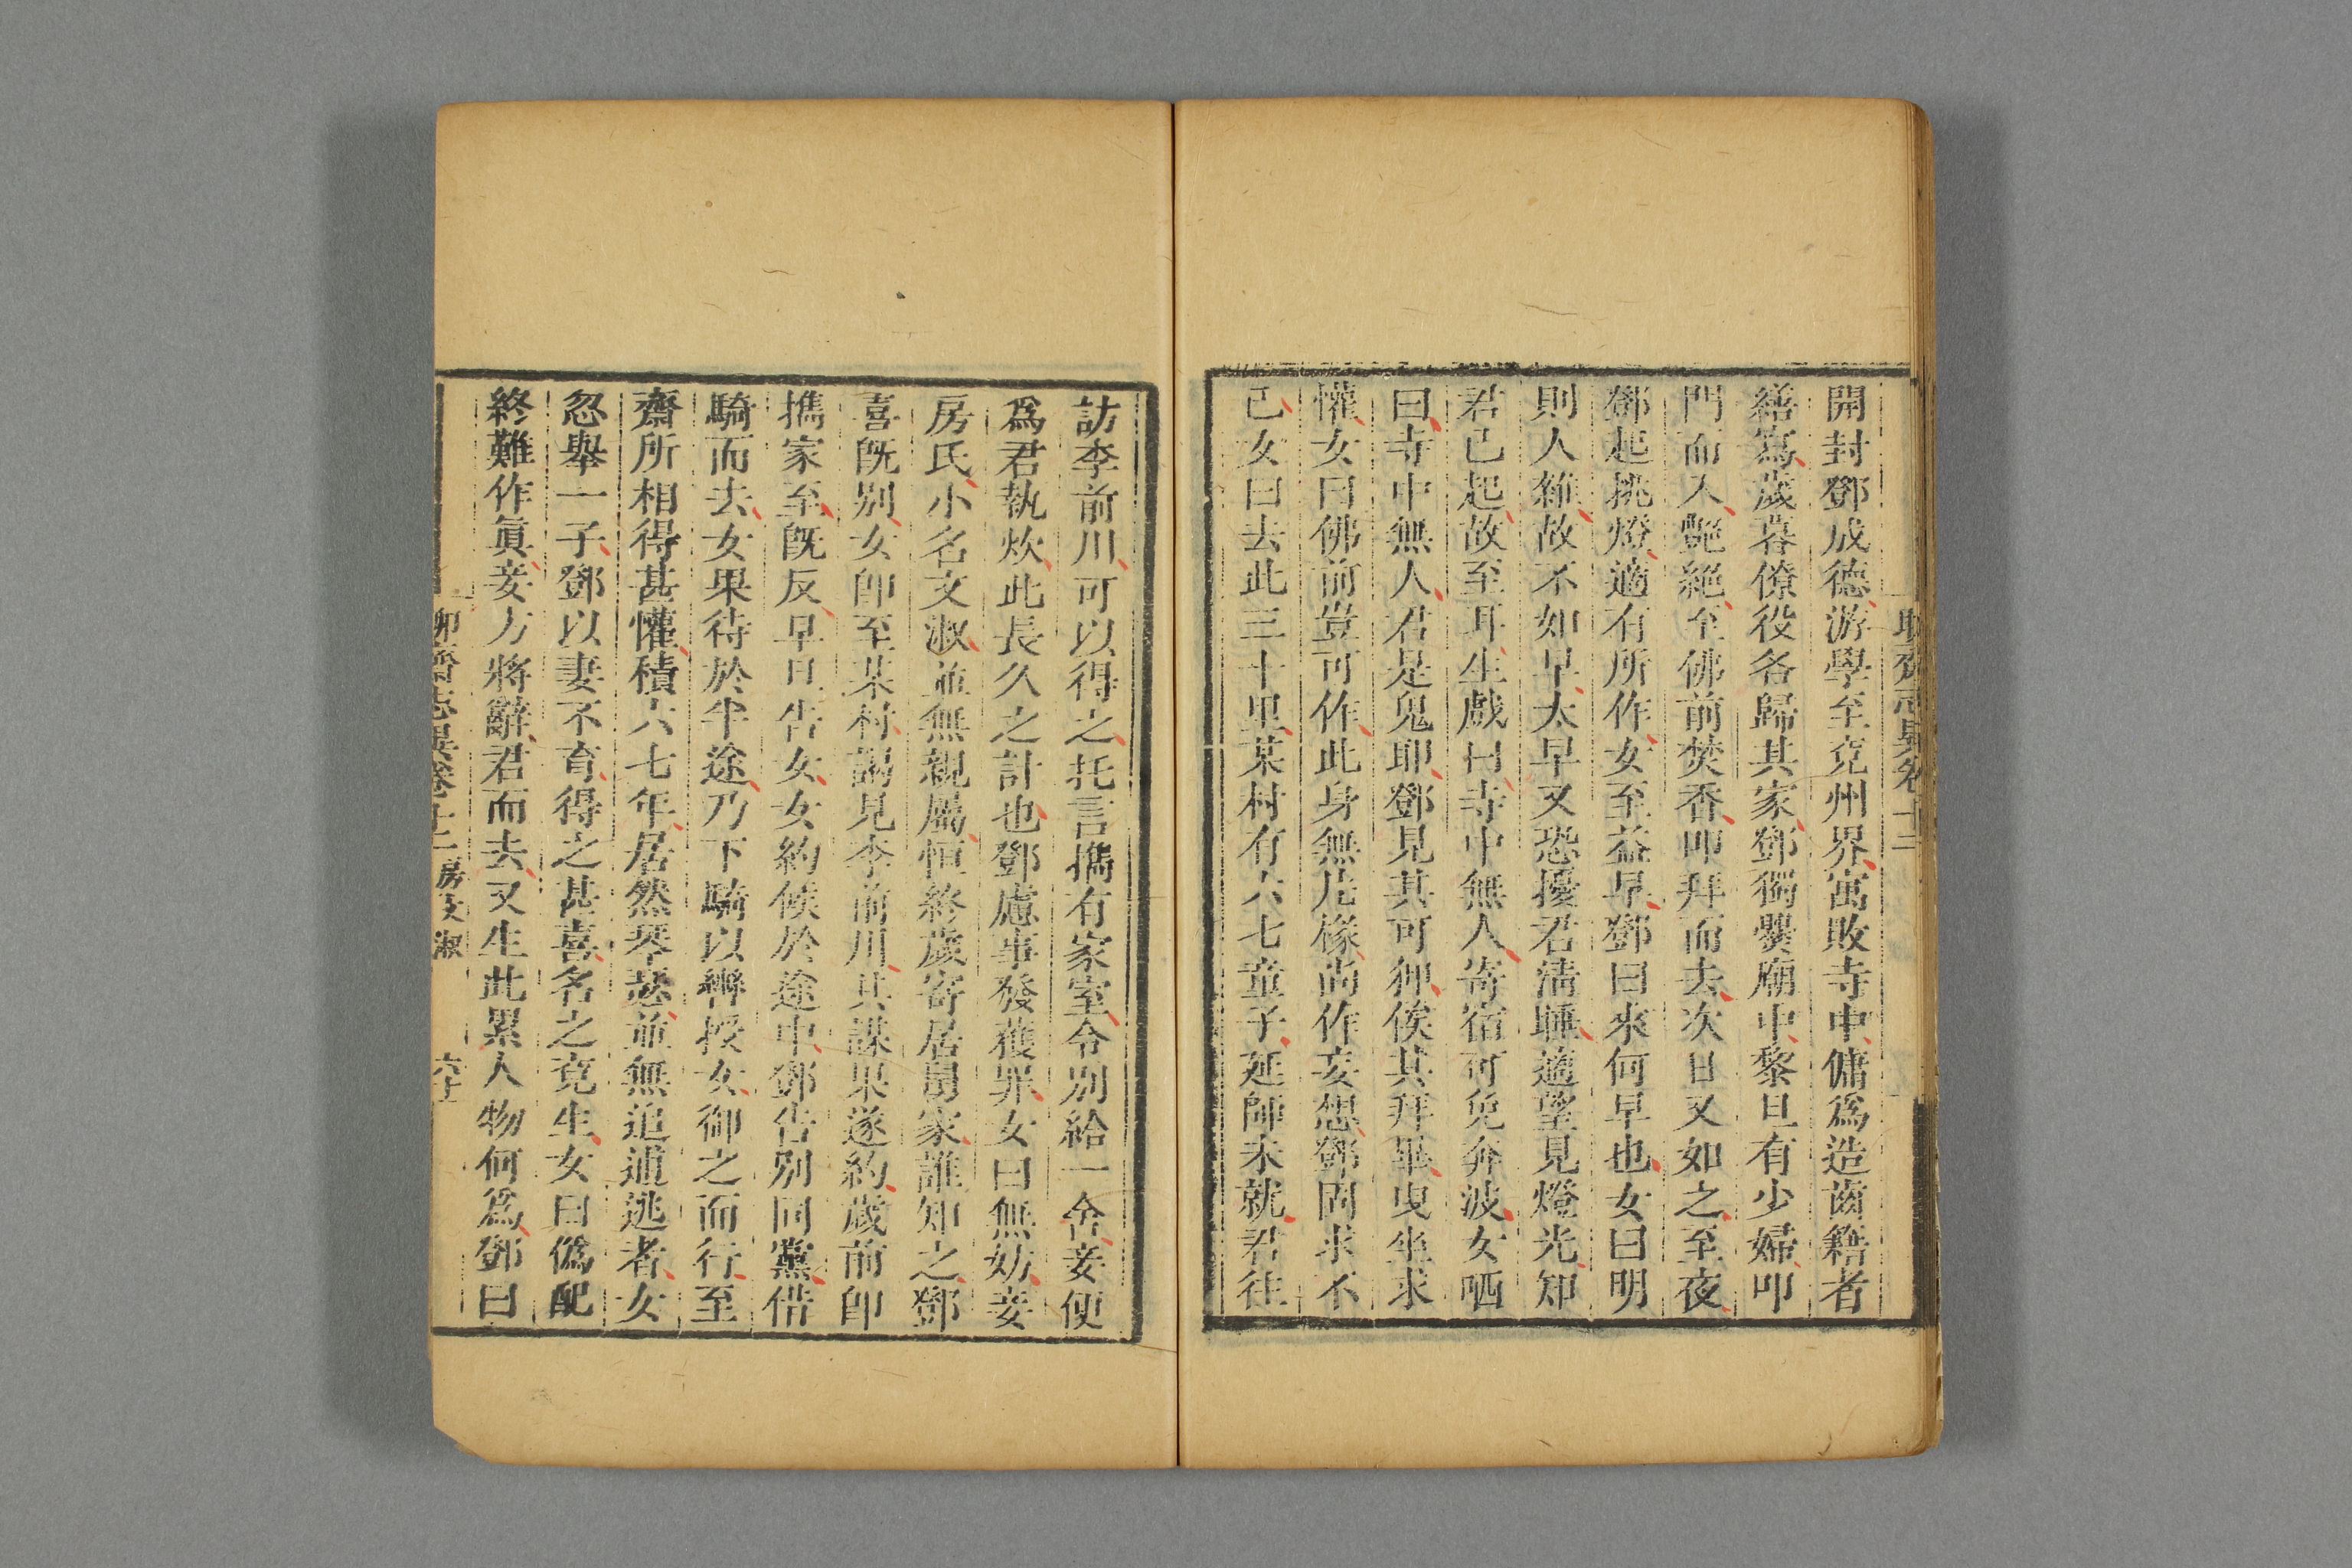 聊齋志異卷十二
開封鄧成德游學至兗州界寓敗寺中傭爲造齒籍者
繕寫歲暮僚役各歸其家鄧獨爨廟中黎旦有少婦叩
門而入艷絶至佛前焚香叩拜而去次日又如之至夜
鄧起挑燈適有所作女至益早鄧曰來何早也女曰明
則人雜故不如早太早又恐擾君清睡適望見燈光知
君已起故至耳生戲曰寺中無人寄宿可免奔波女哂
曰寺中無人君是鬼耶鄧見其可狎俟其拜畢曳坐求
懽女曰佛前豈可作此身無片椽尚作妄想鄧固求不
已女曰去此三十里某村有六七童子延師未就君往
訪李前川可以得之托言攜有家室令別給一舍妾便
爲君執炊此長久之計也鄧慮事發獲罪女曰無妨妾
房氏小名文淑並無親屬恒終歲寄居舅家誰知之鄧
喜旣别女卽至某村謁見李前川其謀果遂約歲前卽
攜家至旣反早旦告女女約候於途中鄧告別同黨借
騎而去女果待於半途乃下騎以轡授女御之而行至
齋所相得甚懽積六七年居然琴瑟並無追逋逃者女
忽舉一子鄧以妻不育得之甚喜名之兗生女曰僞配
終難作眞妾方將辭君而去又生此累人物何爲鄧曰
聊齋志異卷十二 房文淑 六十